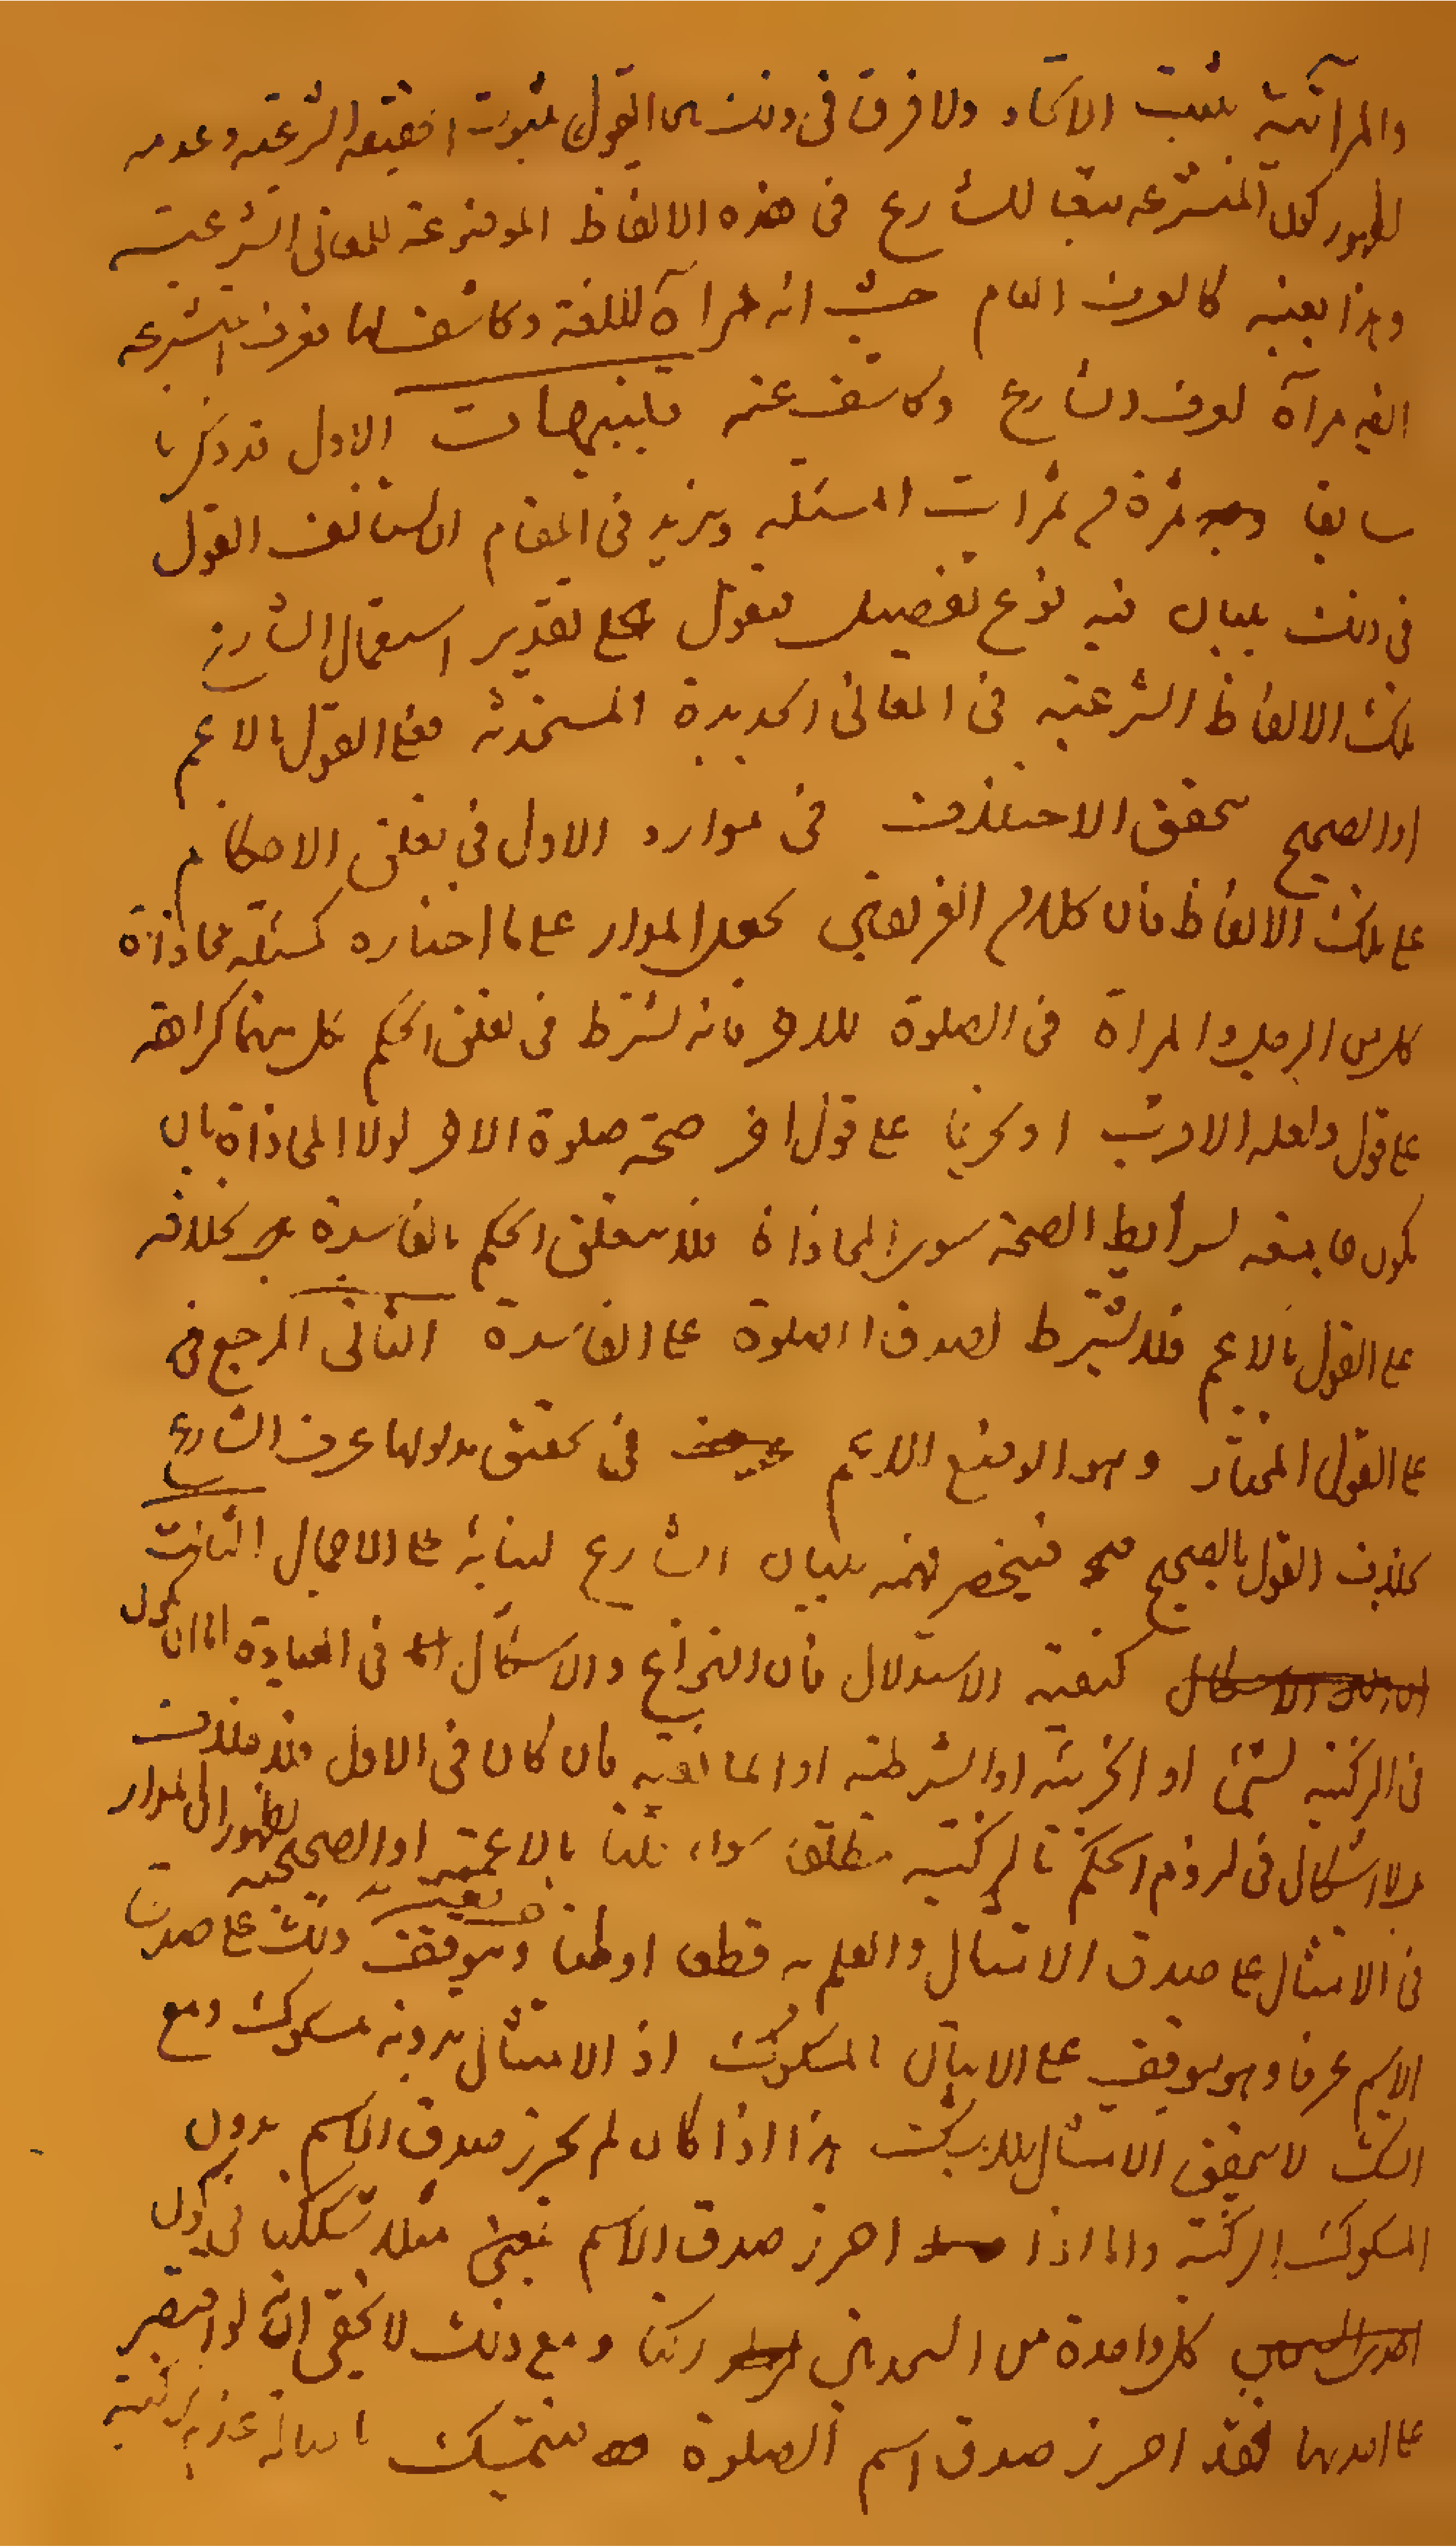 والمرآتية يثبت الاتحاد ولا فرق فى ذلك بين القول بثبوت الحقيقة الشرعية وعدمه
لظهور كون المتشرعة تبعا للشارع فى هذه الالفاظ الموضوعة للمعانى الشرعية
وهذا بعينه كالعرف العام حيث انه مرآة للغة وكاشف لها فعرف المتشرعة
ايضا مرآة لعرف الشارع وكاشف عنه تنبيهات الاول قد ذكرنا
سابقا ثمرة من ثمرات المسئلة ونزيد فى المقام ان نستانف القول
فى ذلك ببيان فيه نوع تفصيل فنقول على تقدير استعمال الشارع
تلك الالفاظ الشرعية فى المعانى الجديدة المستحدثة فعلى القول بالاعم
او الصحيح يتحقق الاختلاف فى موارد الاول فى تعلق الاحكام
على تلك الالفاظ فان كلا من الفريقين يجعل المدار على ما اختاره كمسئلة محاذاة
كل من الرجل والمراة فى الصلوة للاخر فانه يشترط فى تعلق الحكم بكل منهما كراهة
على قول ولعله الاقرب او تحريما على قول اخر صحة صلوة الاخر لولا المحاذاة بان
يكون جامعة لشرايط الصحة سوى المحاذاة فلا يتعلق الحكم بالفاسدة بخلافه
على القول بالاعم فلا يشترط لصدق الصلوة على الفاسدة الثانى المرجع فى
على القول المختار وهو الوضع للاعم فى تحقيق مدلولها عرف الشارع
بخلاف القول بالصحيح فينحصر فهمه ببيان الشارع لبنائه على الاجمال الثالث
كيفية الاستدلال فان النزاع والاشكال فى العبادة اما ان يكون
فى الركنية لشئ او الجزئية او الشرطية او المانعية فان كان فى الاول فلا خلاف
ولا اشكال فى لزوم الحكم بالركنية مطلقا سواء قلنا بالاعمية او الصحيحية لظهور ان المدار
فى الامتثال على صدق الامتثال والعلم به قطعا او ظنا وهو يتوقف ذلك على صدق
الاسم عرفا وهو يتوقف على الاتيان بالمشكوك اذ الامتثال بدونه مشكوك ومع
الشك لا يتحقق الامتثال بلا شك هذا اذا كان لم يحرز صدق الاسم بدون
المشكوك الركنية واما اذا احرز صدق الاسم يعنى مثلا شككنا فى كون
كل واحدة من السجدتين ركنا ومع ذلك لا يخفى انه لو اقتصر
على احدهما فقد احرز صدق اسم الصلوة فنتمسك باصالة عدم ركنية